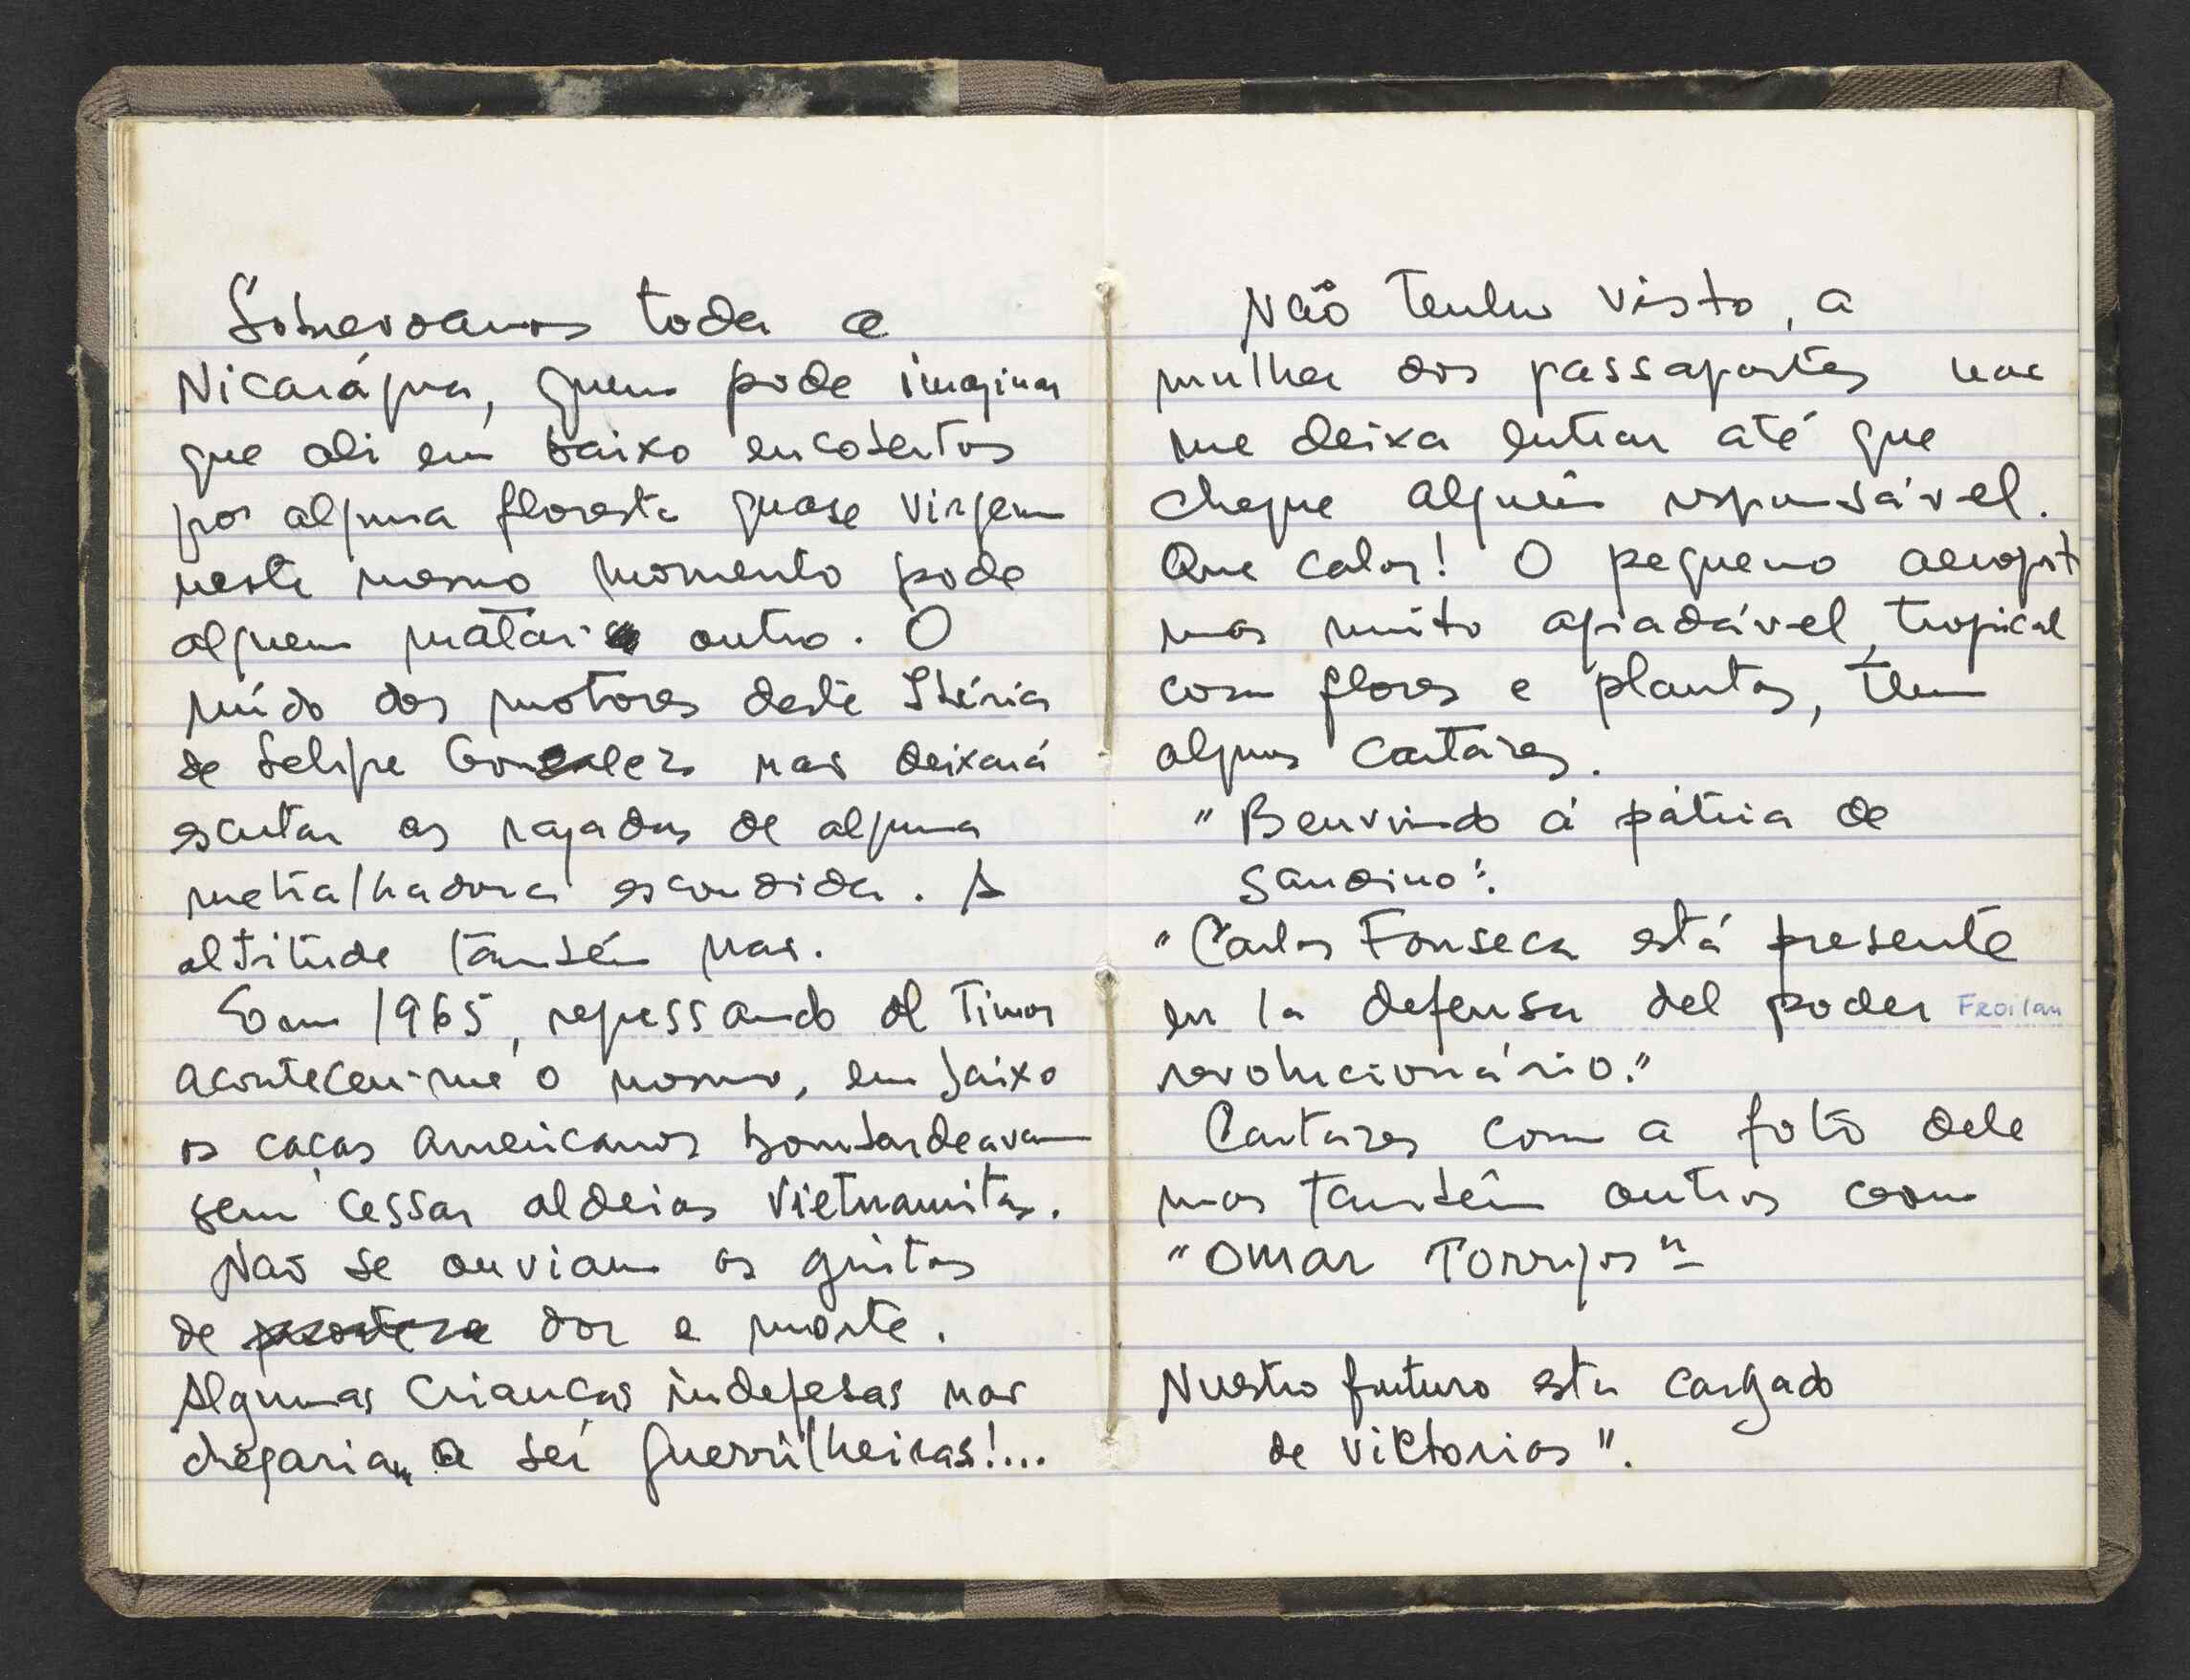 Sobrevoamos toda a
Nicarágua, quem pode imaginar
que ali em baixo encobertos
por alguma floresta quase virgem
neste mesmo momento pode
alguem matar outro. O
ruído dos motores deste Ibéria
de Felipe Gonzalez nao deixará
escutar as rajadas de alguma
metralhadora escondida. A
altitude também nao.
Em 1965, regressando de Timor
aconteceu-me o mesmo, em baixo
os caças americanos bombardeavam
sem cessar aldeias Vietnamitas.
Nao se ouviam os gritos
de dor e morte.
Algumas crianças indefesas nao
chegariam a ser guerrilheiras!...
Não tenho visto, a
mulher dos passaportes nao
me deixa entrar até que
chegue alguém responsável.
Que calor! O pequeno aeroport
mas muito agradável, tropical
com flores e plantas, tem
alguns cartazes.
"Benvindo á pátria de
Sandino".
"Carlos Fonseca está presente
en la defensa del poder Froilan
revolucionário."
Cartazes com a foto dele
mas também outros com
"Omar Torrijos"
Nuestro futuro esta cargado
de viktorias".